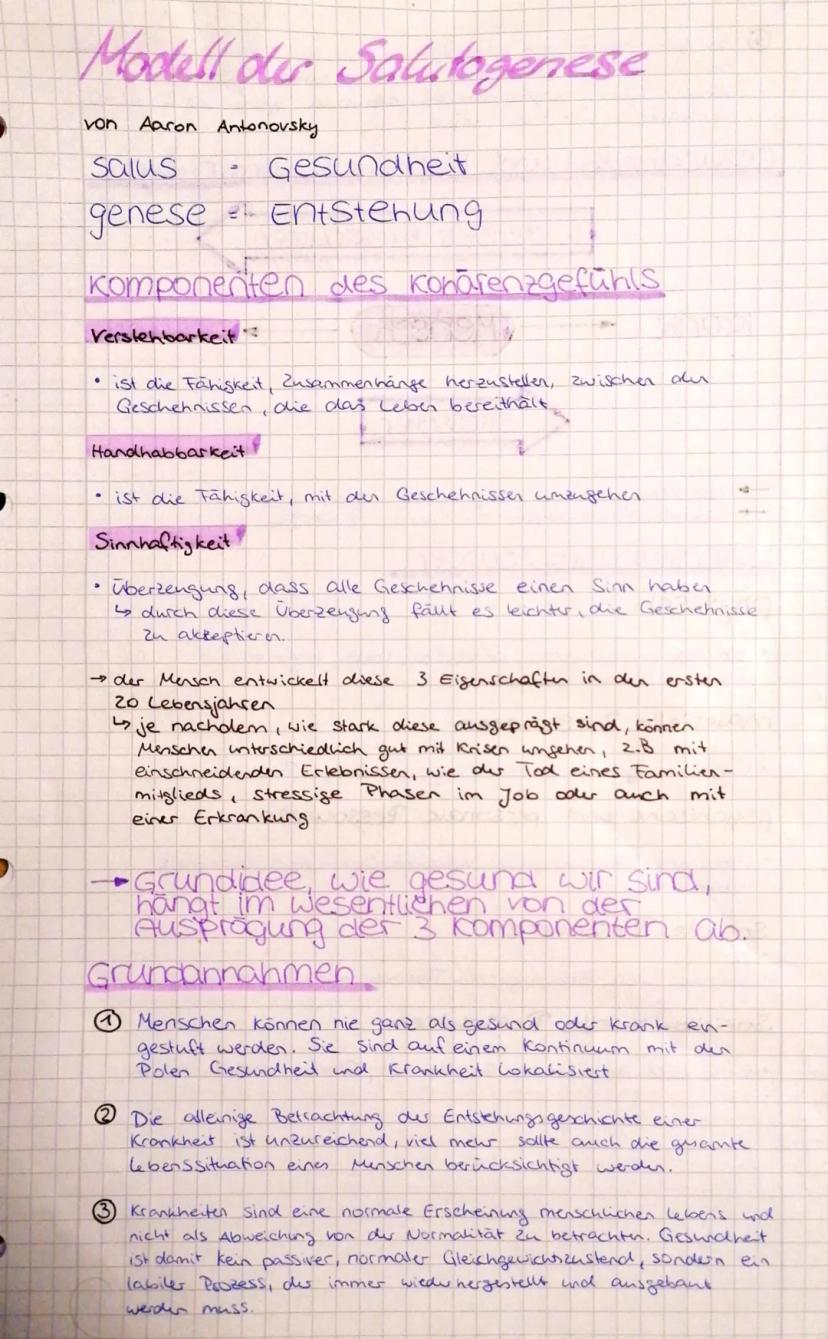 Modell der Salutogenese
von Aaron Antonovsky
salus - Gesundheit
genese = Entstehung
Komponenten des Kohärenzgefühls
Verstehbarkeit
• ist die Fähigkeit, Zusammenhänge herzustellen, zwischen den
Geschehnissen, die das Leben bereithält
Handhabbarkeit
• ist die Fähigkeit, mit den Geschehnissen umzugehen
Sinnhaftigkeit
• Überzeugung, dass alle Geschehnisse einen Sinn haben
↳ durch diese Überzeugung fällt es leichter, die Geschehnisse
zu akzeptieren.
→ der Mensch entwickelt diese 3 Eigenschaften in den ersten
20 Lebensjahren
↳ je nachdem, wie stark diese ausgeprägt sind, können
Menschen unterschiedlich gut mit Krisen umgehen, z.B mit
einschneidenden Erlebnissen, wie der Tod eines Familien-
mitglieds, stressige Phasen im Job oder auch mit
einer Erkrankung
→ Grundidee, wie gesund wir sind,
hängt im wesentlichen von der
Ausprägung der 3 Komponenten ab.
Grundannahmen
① Menschen können nie ganz als gesund oder krank ein-
gestuft werden. Sie sind auf einem Kontinuum mit den
Polen Gesundheit und Krankheit lokalisiert
② Die alleinige Betrachtung der Entstehungsgeschichte einer
Krankheit ist unzureichend, viel mehr sollte auch die gesamte
Lebenssituation eines Menschen berücksichtigt werden.
③ Krankheiten sind eine normale Erscheinung menschlichen Lebens und
nicht als Abweichung von der Normalität zu betrachten. Gesundheit
ist damit kein passiver, normaler Gleichgewichtszustand, sondern ein
labiler Prozess, der immer wieder hergestellt und ausgebaut
werden muss.